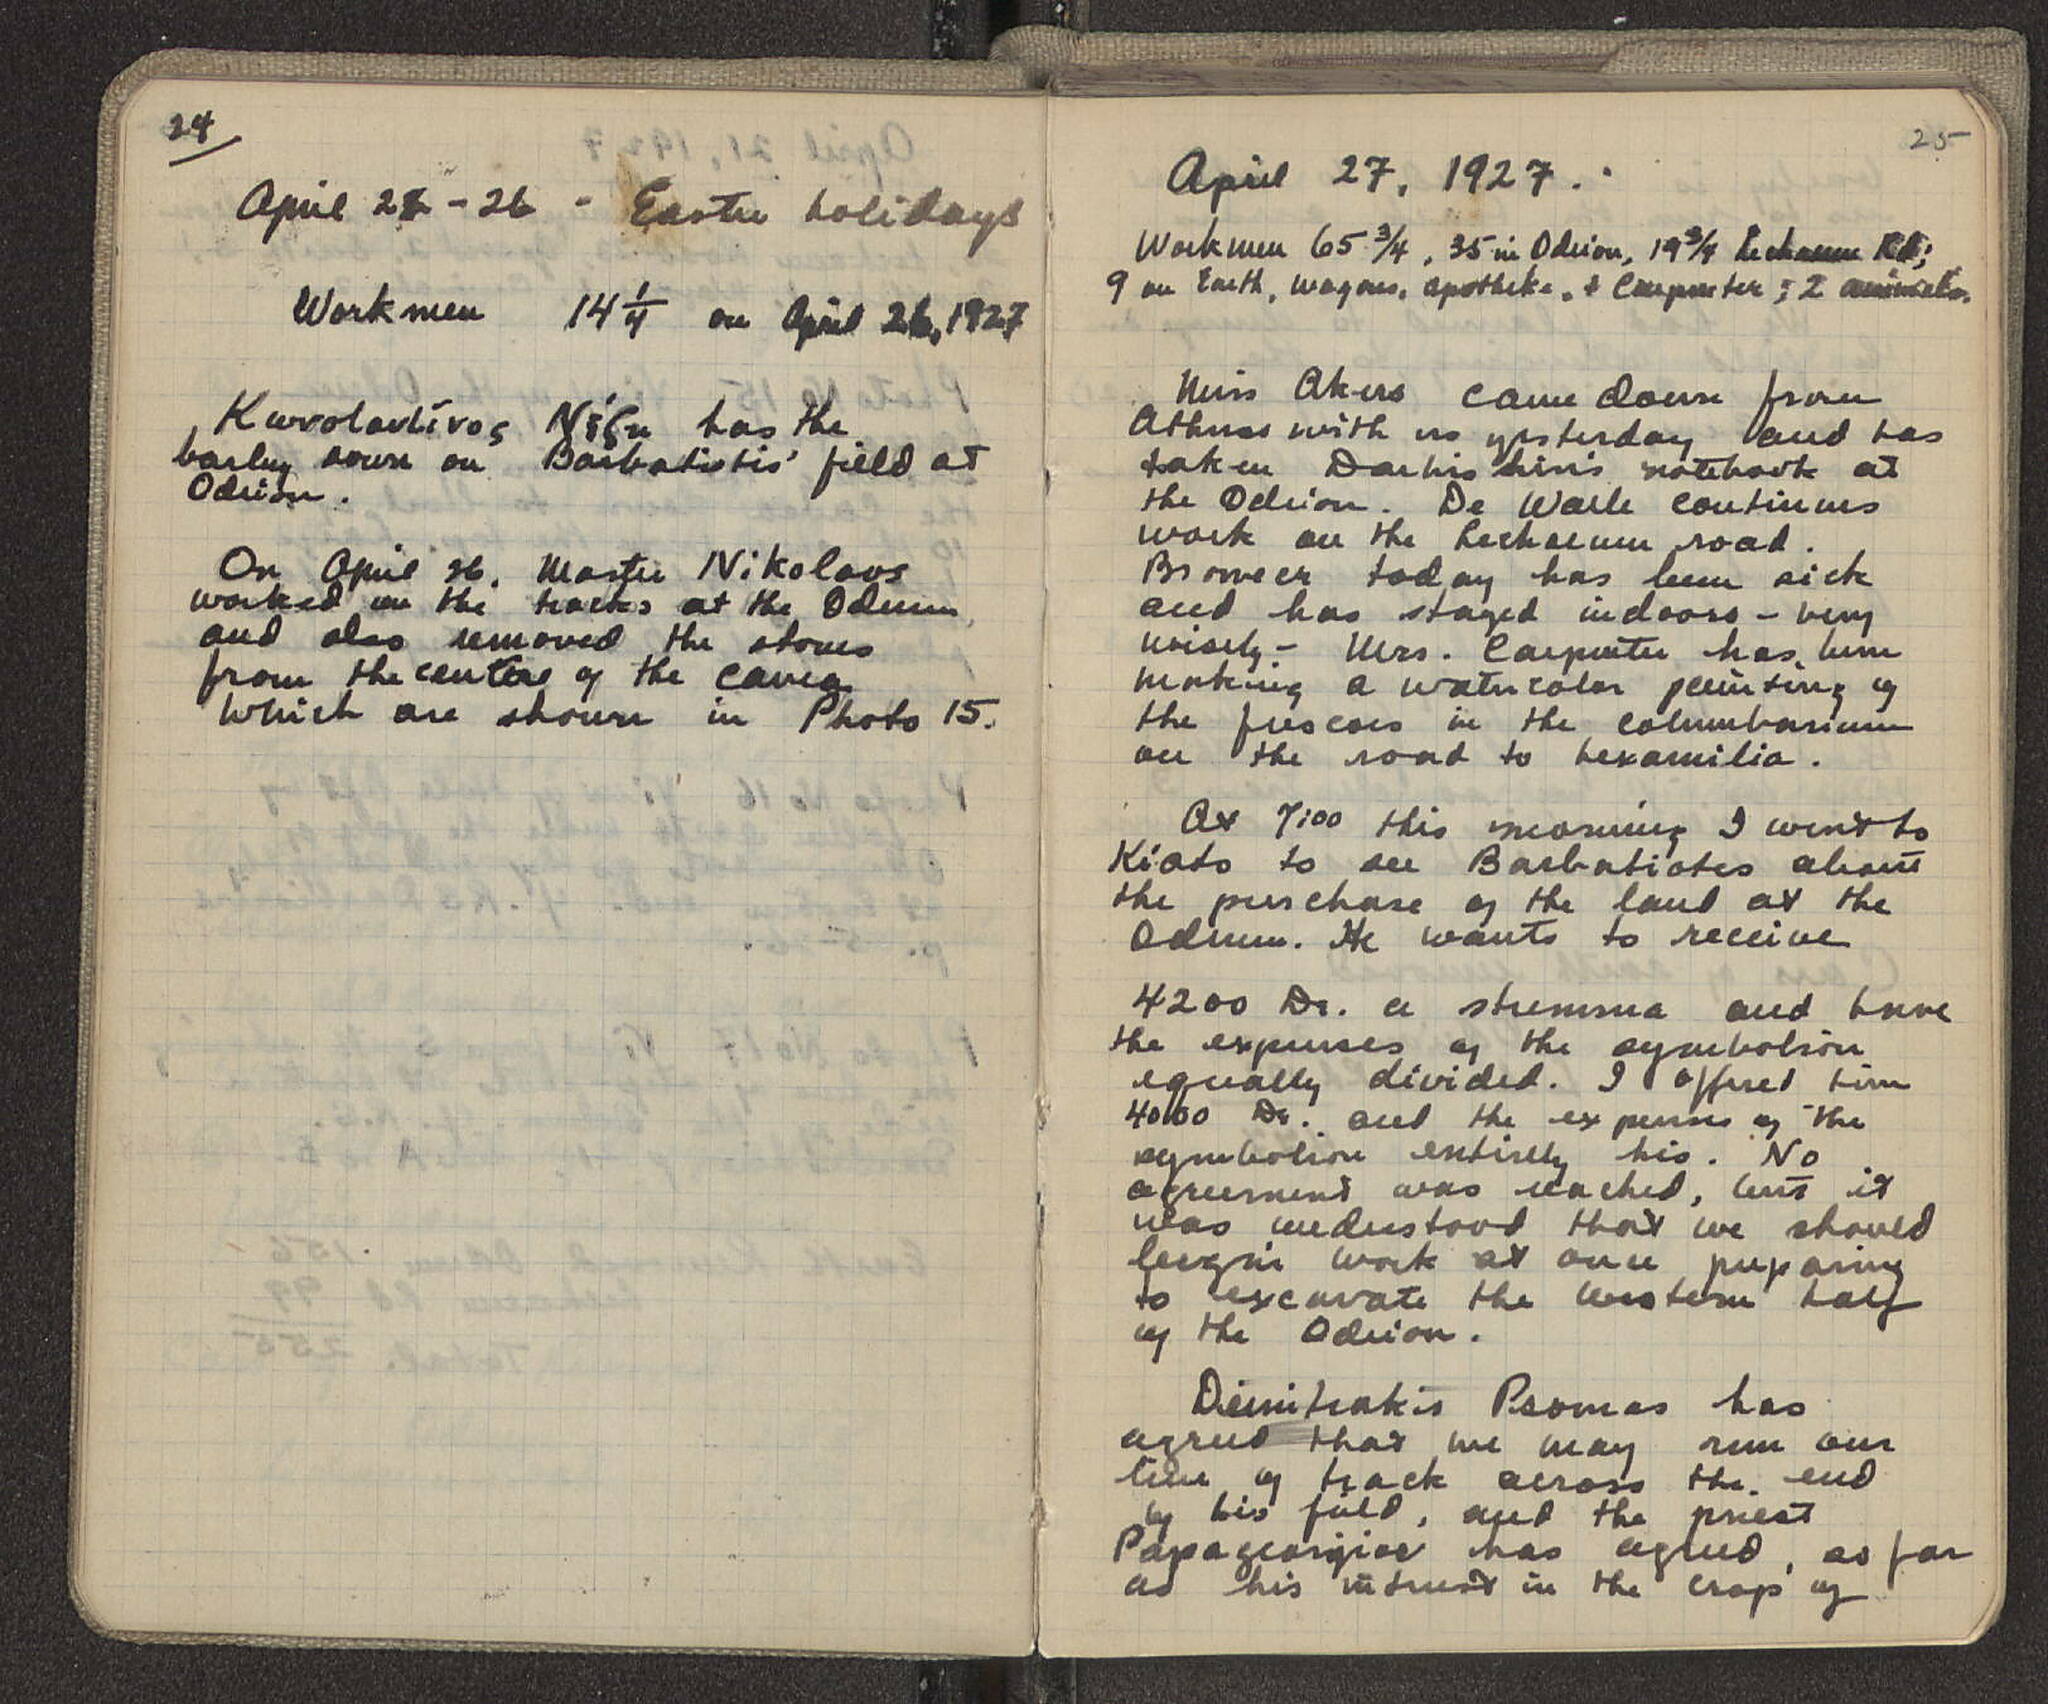 24
April 22-26 - Easter holidays
Workmen 14 1/4 on April 26, 1927
Κωνσταντίνος has the
barley sown on Barbatiotis' field at
Odeion.
On April 26, Master Nikolaos
worked on the tracks at the Odeum
and also removed the stones
from the centre of the cavea
which are shown in Photo 15.
25
April 27, 1927.
Workmen 65 3/4, 35 in Odeion, 19 3/4 Lechaeum Rd;
9 on Earth, wagons, apotheke, & Carpenter; 2
Miss Akers came down from
Athens with us yesterday and has
taken Darbishire's notebook at
the Odeion. De Waele continues
work on the Lechaeum road.
Broneer today has been sick
and has stayed indoors - very
wisely - Mrs. Carpenter has been
making a watercolor painting of
the frescoes in the columbarium
on the road to Hexamilia.
At 7:00 this morning I went to
Kiato to see Barbatiotes about
the purchase of the land at the
Odeum. He wants to receive
4200 Dr. a stremma and have
the expenses of the symbolion
equally divided. I offered him
4000 Dr. and the expenses of the
symbolion entirely his. No
agreement was reached, but it
was understood that we should
begin work at once preparing
to excavate the western half
of the Odeion.
Dimitrakis Psomas has
agreed that we may run our
line of track across the end
of his field, and the priest
Papageorgiou has agreed, as far
as his interest in the crop of